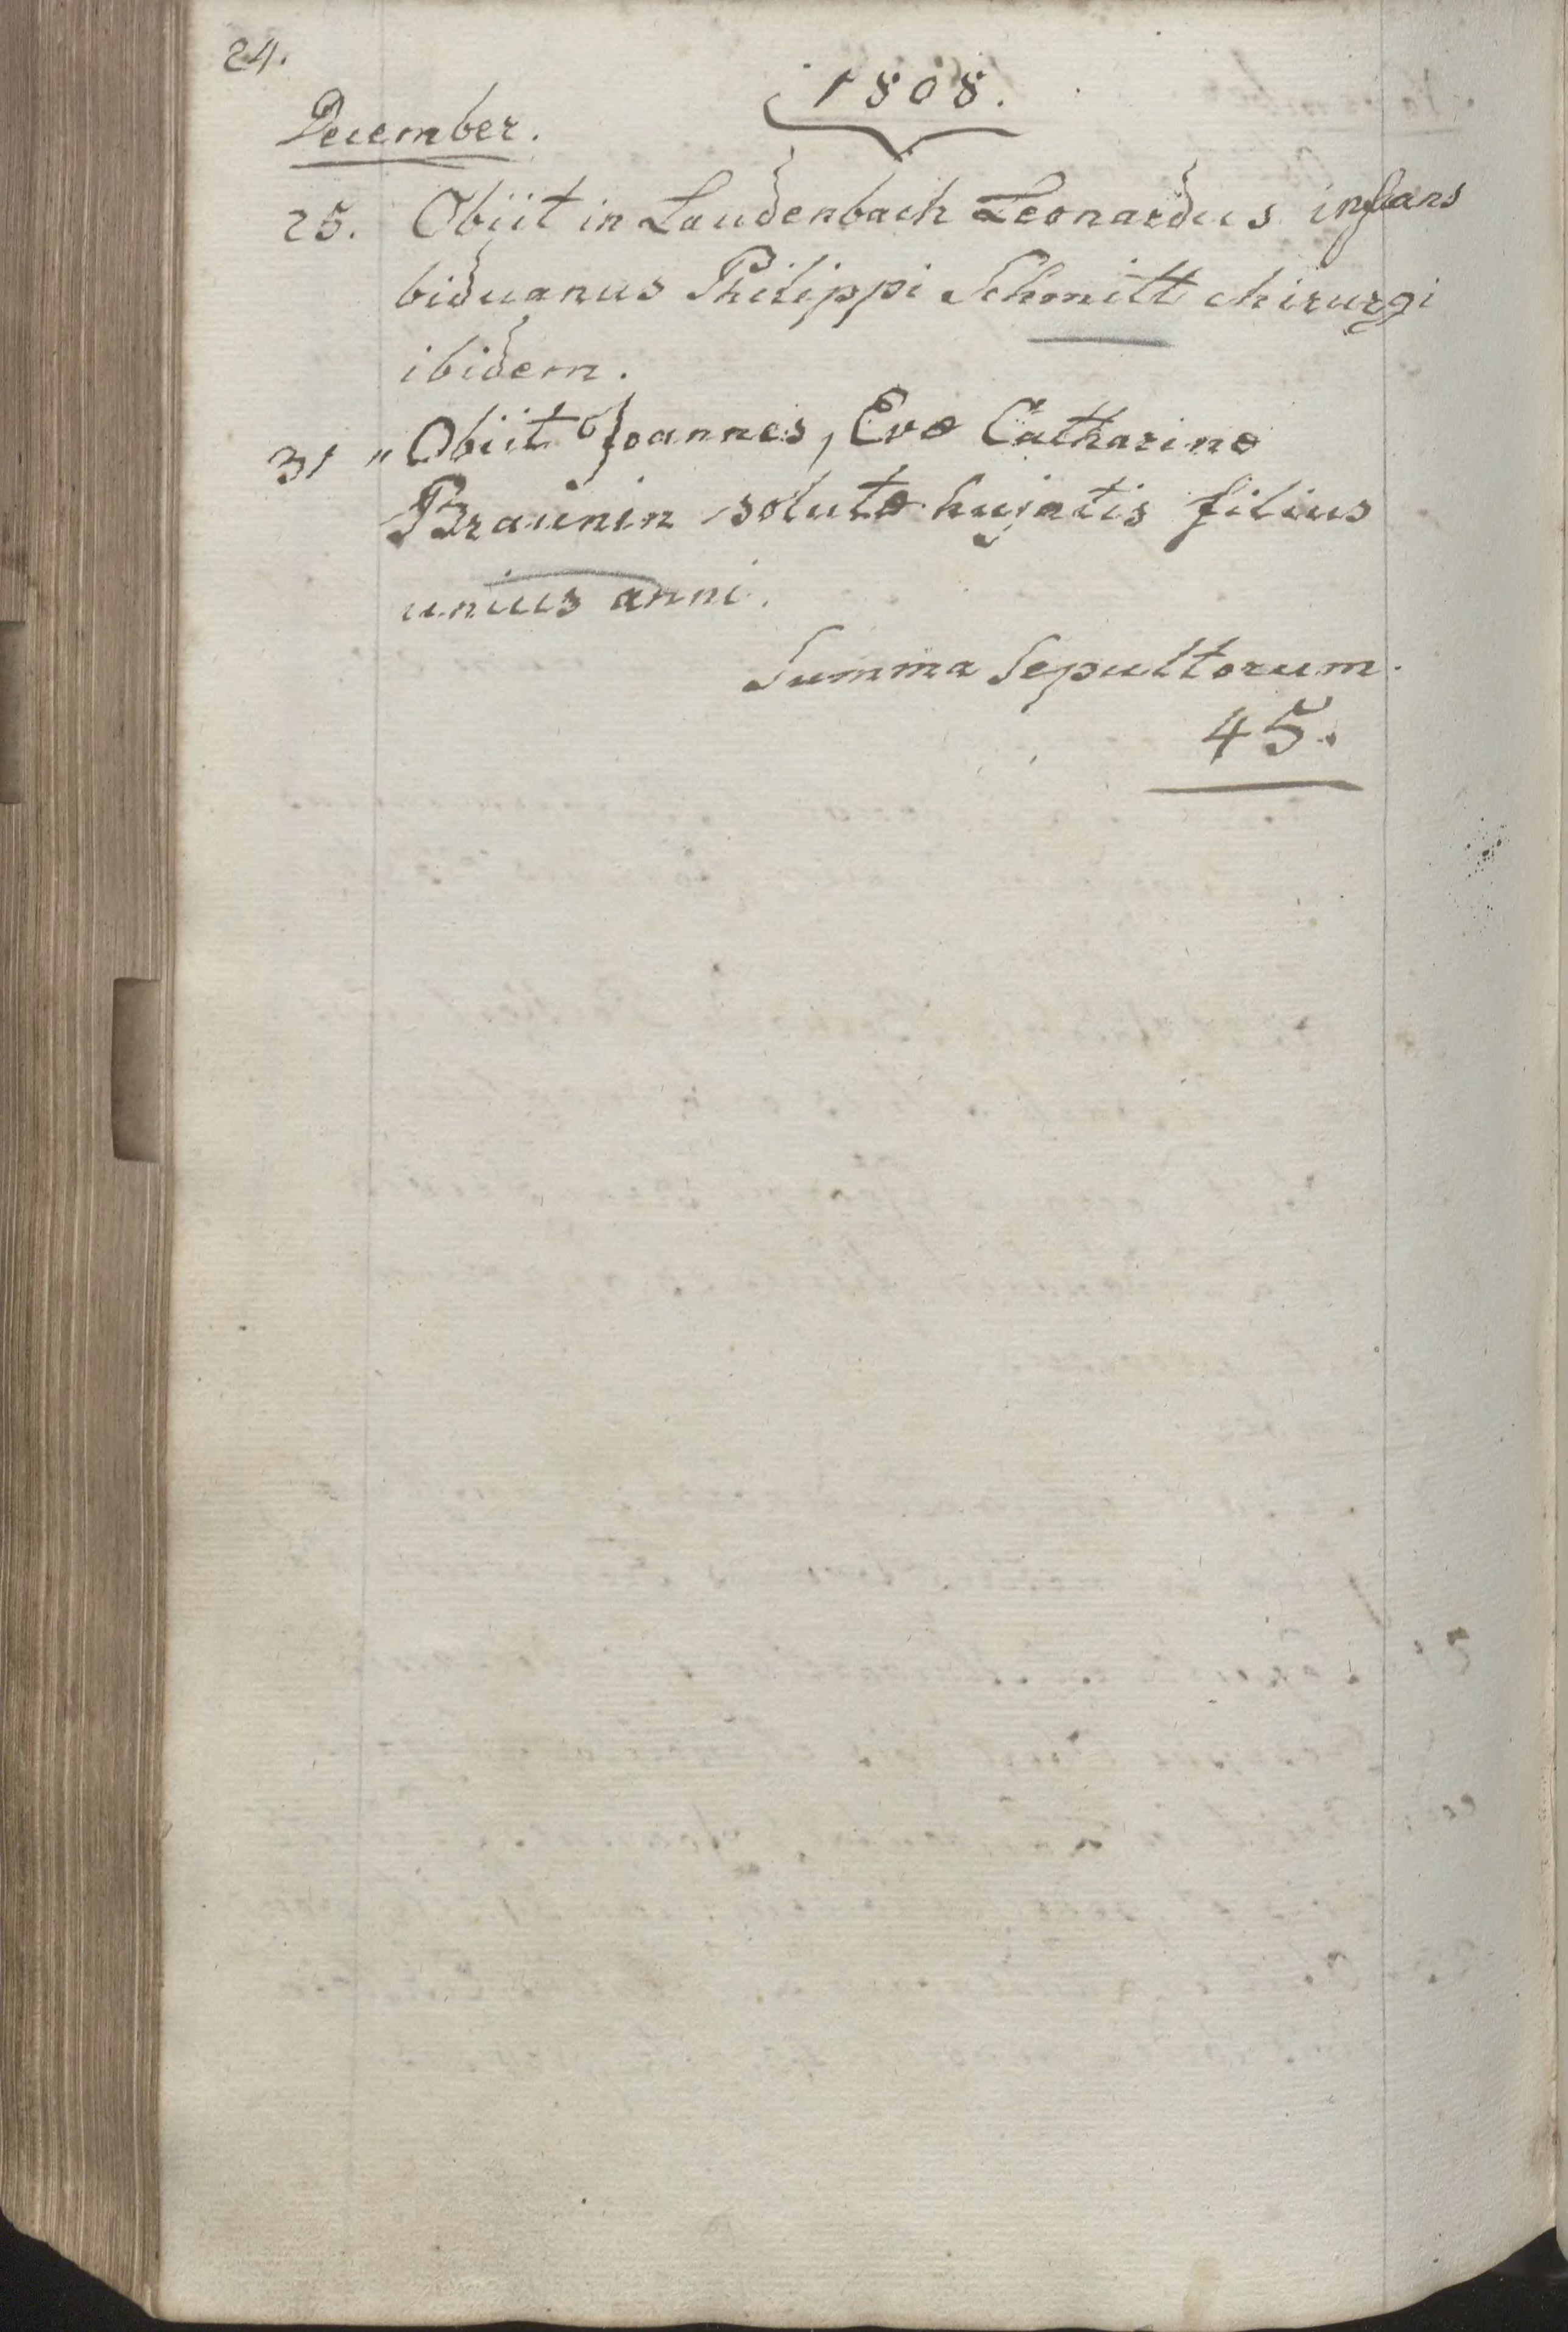 24.
1808.
December.
25. Obiit in Laudenbach Leonardus infans
biduanus Philippi Schmitt chirurgi
ibidem.
31 " Obiit Joannes, Evæ Catharinæ
Braunin solutæ hujatis filius
unius anni.
Summa Sepultorum.
45.